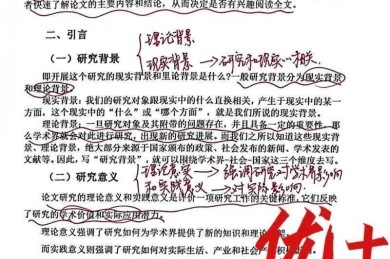 者快速了解论文的主要内容和结论，从而决定是否有兴趣阅读全文。
二、引言
理论背景
（一）研究背景
现实背景
即开展这个研究的现实背景和理论背景是什么？一般研究背景分为现实背景
和理论背景。
现实背景：我们的研究对象跟现实中的什么直接相关，产生于现实中的某一
方面，这个中的“什么”或“哪个方面”，就是我们所说的现实背景。
理论背景：一旦研究对象及其附带的问题存在，并且具备一定的重要性，那
么学术界就会对此进行研究，出现新的研究进展，而我们之所以知道这些现实背
景、理论背景，绝大部分来源于国家颁布的政策、社会发布的新闻、学术发表的
文献等。因此，写“研究背景”，就可以围绕学术界—社会—国家这三个维度去写。
（二）研究意义
理论意义
强调研究对学术
和实践意义
对实际
论文研究的理论意义和实践意义是评价一项研究工作的关键标准，它们反映
了研究的学术价值和实际应用潜力。
理论意义强调了研究如何为学术界提供了新的知识和理论
而实践意义则强调了研究如何对实际生活、产业和社会产
优